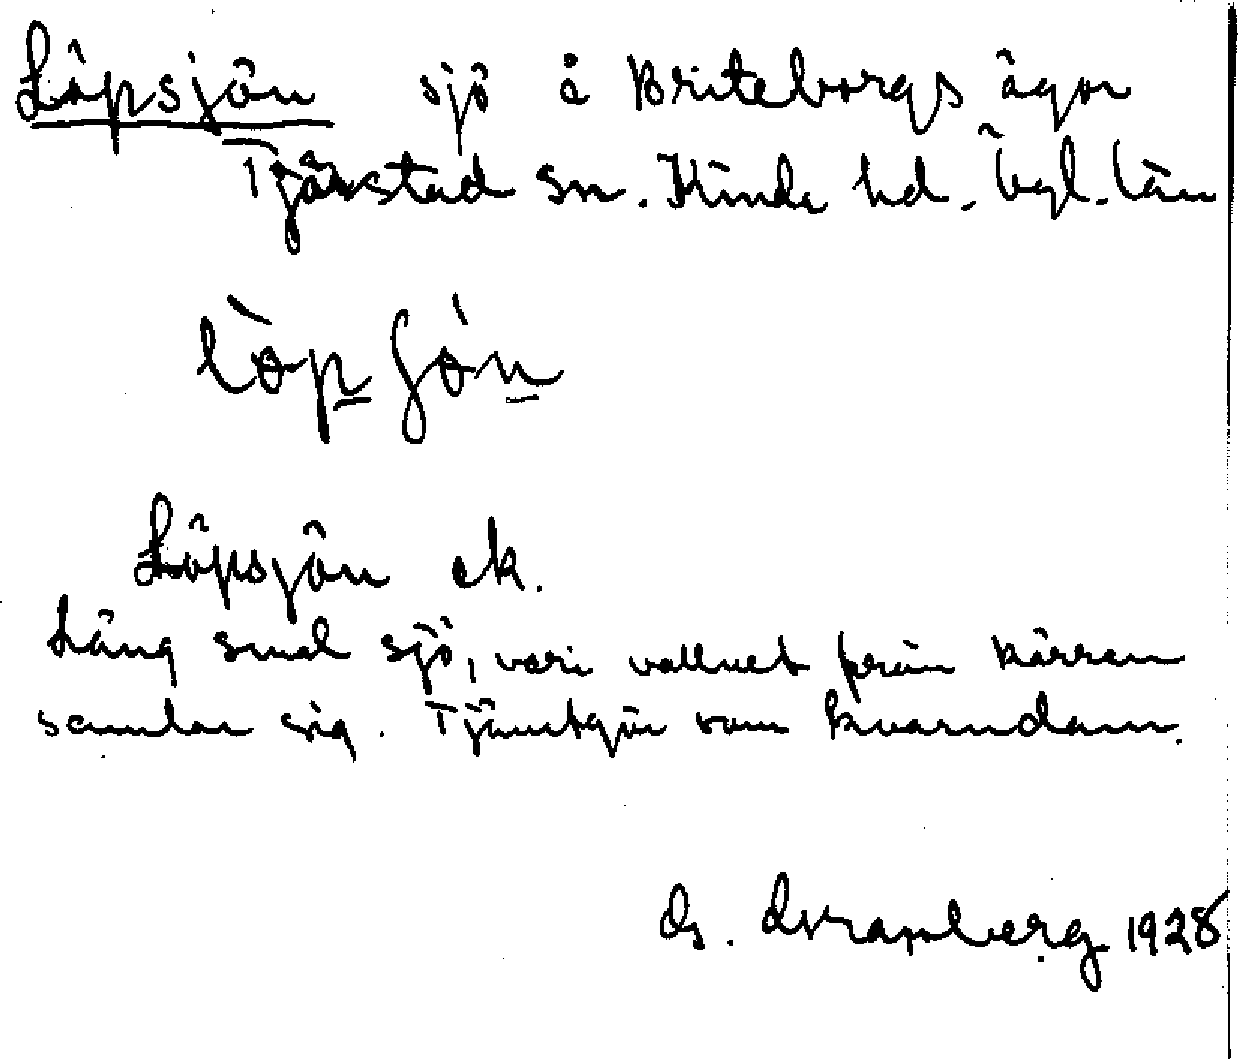 Löpsjön sjö å Briteborgs ägor
Tjärstad sn. Kinda hd. Ögl. län
Löpsjön ek.
Lång smal sjö, vari vattnet från kärren
samlar sig. Tjänstgör som kvarndam.
1928